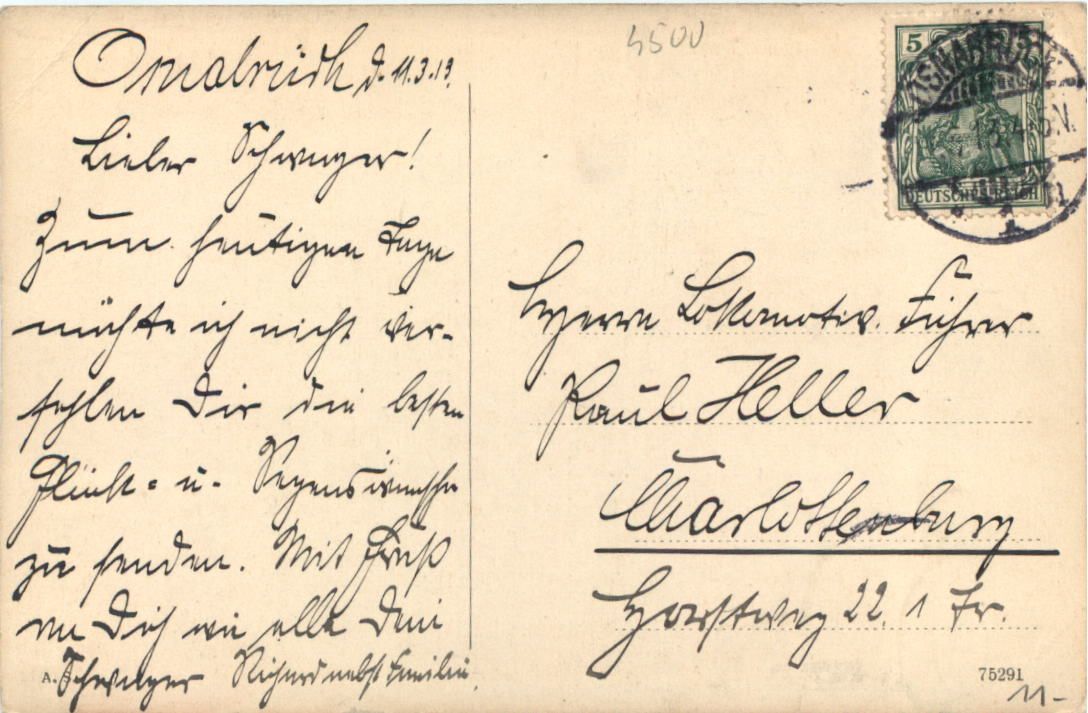 4500
Osnabrück d. 11.3.13.
Lieber Schwager!
Zum heutigen Tage
möchte ich nicht ver-
fehlen Dir die besten
Glück- u. Segenswünsche
zu senden. Mit Gruß
an Dich wie alle Dein
Schwager Richard nebst Familie.
A. S.
5
DEUTSCHES REICH
OSNABRÜCK
Herrn Lokomotiv. Führer
Paul Heller
Charlottenburg
Horstweg 22. 1 Tr.
75291
11-